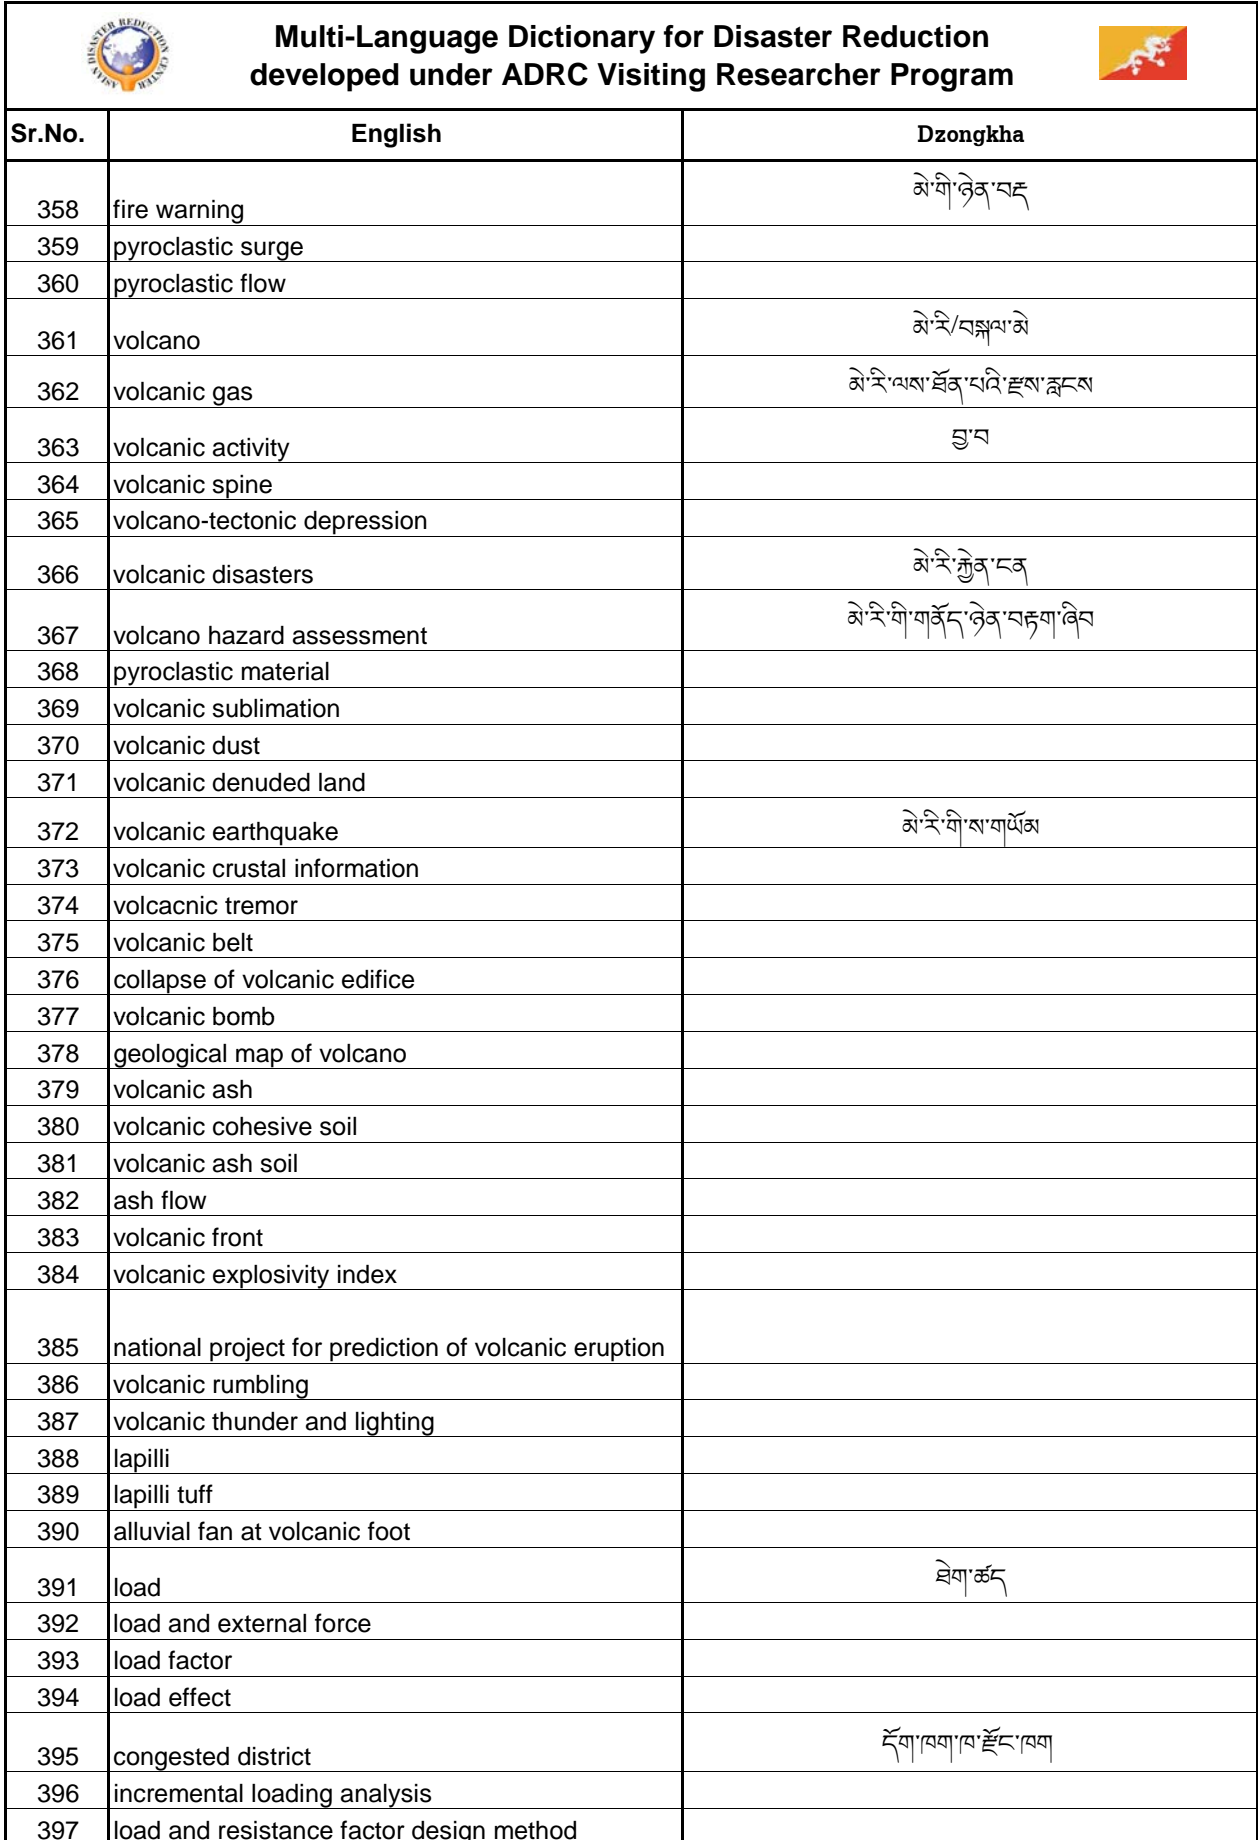 ASIAN DISASTER REDUCTION CENTER
Multi-Language Dictionary for Disaster Reduction
developed under ADRC Visiting Researcher Program
Sr.No. English Dzongkha
358 fire warning མེ་གི་ཉེན་བརྡ
359 pyroclastic surge
360 pyroclastic flow
361 volcano མེ་རི/བསྐལ་མེ
362 volcanic gas མེ་རི་ལས་ཐོན་པའི་རྫས་རླངས
363 volcanic activity བྱ་བ
364 volcanic spine
365 volcano-tectonic depression
366 volcanic disasters མེ་རི་རྐྱེན་ངན
367 volcano hazard assessment མེ་རི་གི་གནོད་ཉེན་བརྟག་ཞིབ
368 pyroclastic material
369 volcanic sublimation
370 volcanic dust
371 volcanic denuded land
372 volcanic earthquake མེ་རི་གི་ས་གཡོམ
373 volcanic crustal information
374 volcacnic tremor
375 volcanic belt
376 collapse of volcanic edifice
377 volcanic bomb
378 geological map of volcano
379 volcanic ash
380 volcanic cohesive soil
381 volcanic ash soil
382 ash flow
383 volcanic front
384 volcanic explosivity index
385 national project for prediction of volcanic eruption
386 volcanic rumbling
387 volcanic thunder and lighting
388 lapilli
389 lapilli tuff
390 alluvial fan at volcanic foot
391 load ཐེག་ཚད
392 load and external force
393 load factor
394 load effect
395 congested district དོག་ཁག་ཁ་རྫོང་ཁག
396 incremental loading analysis
397 load and resistance factor design method